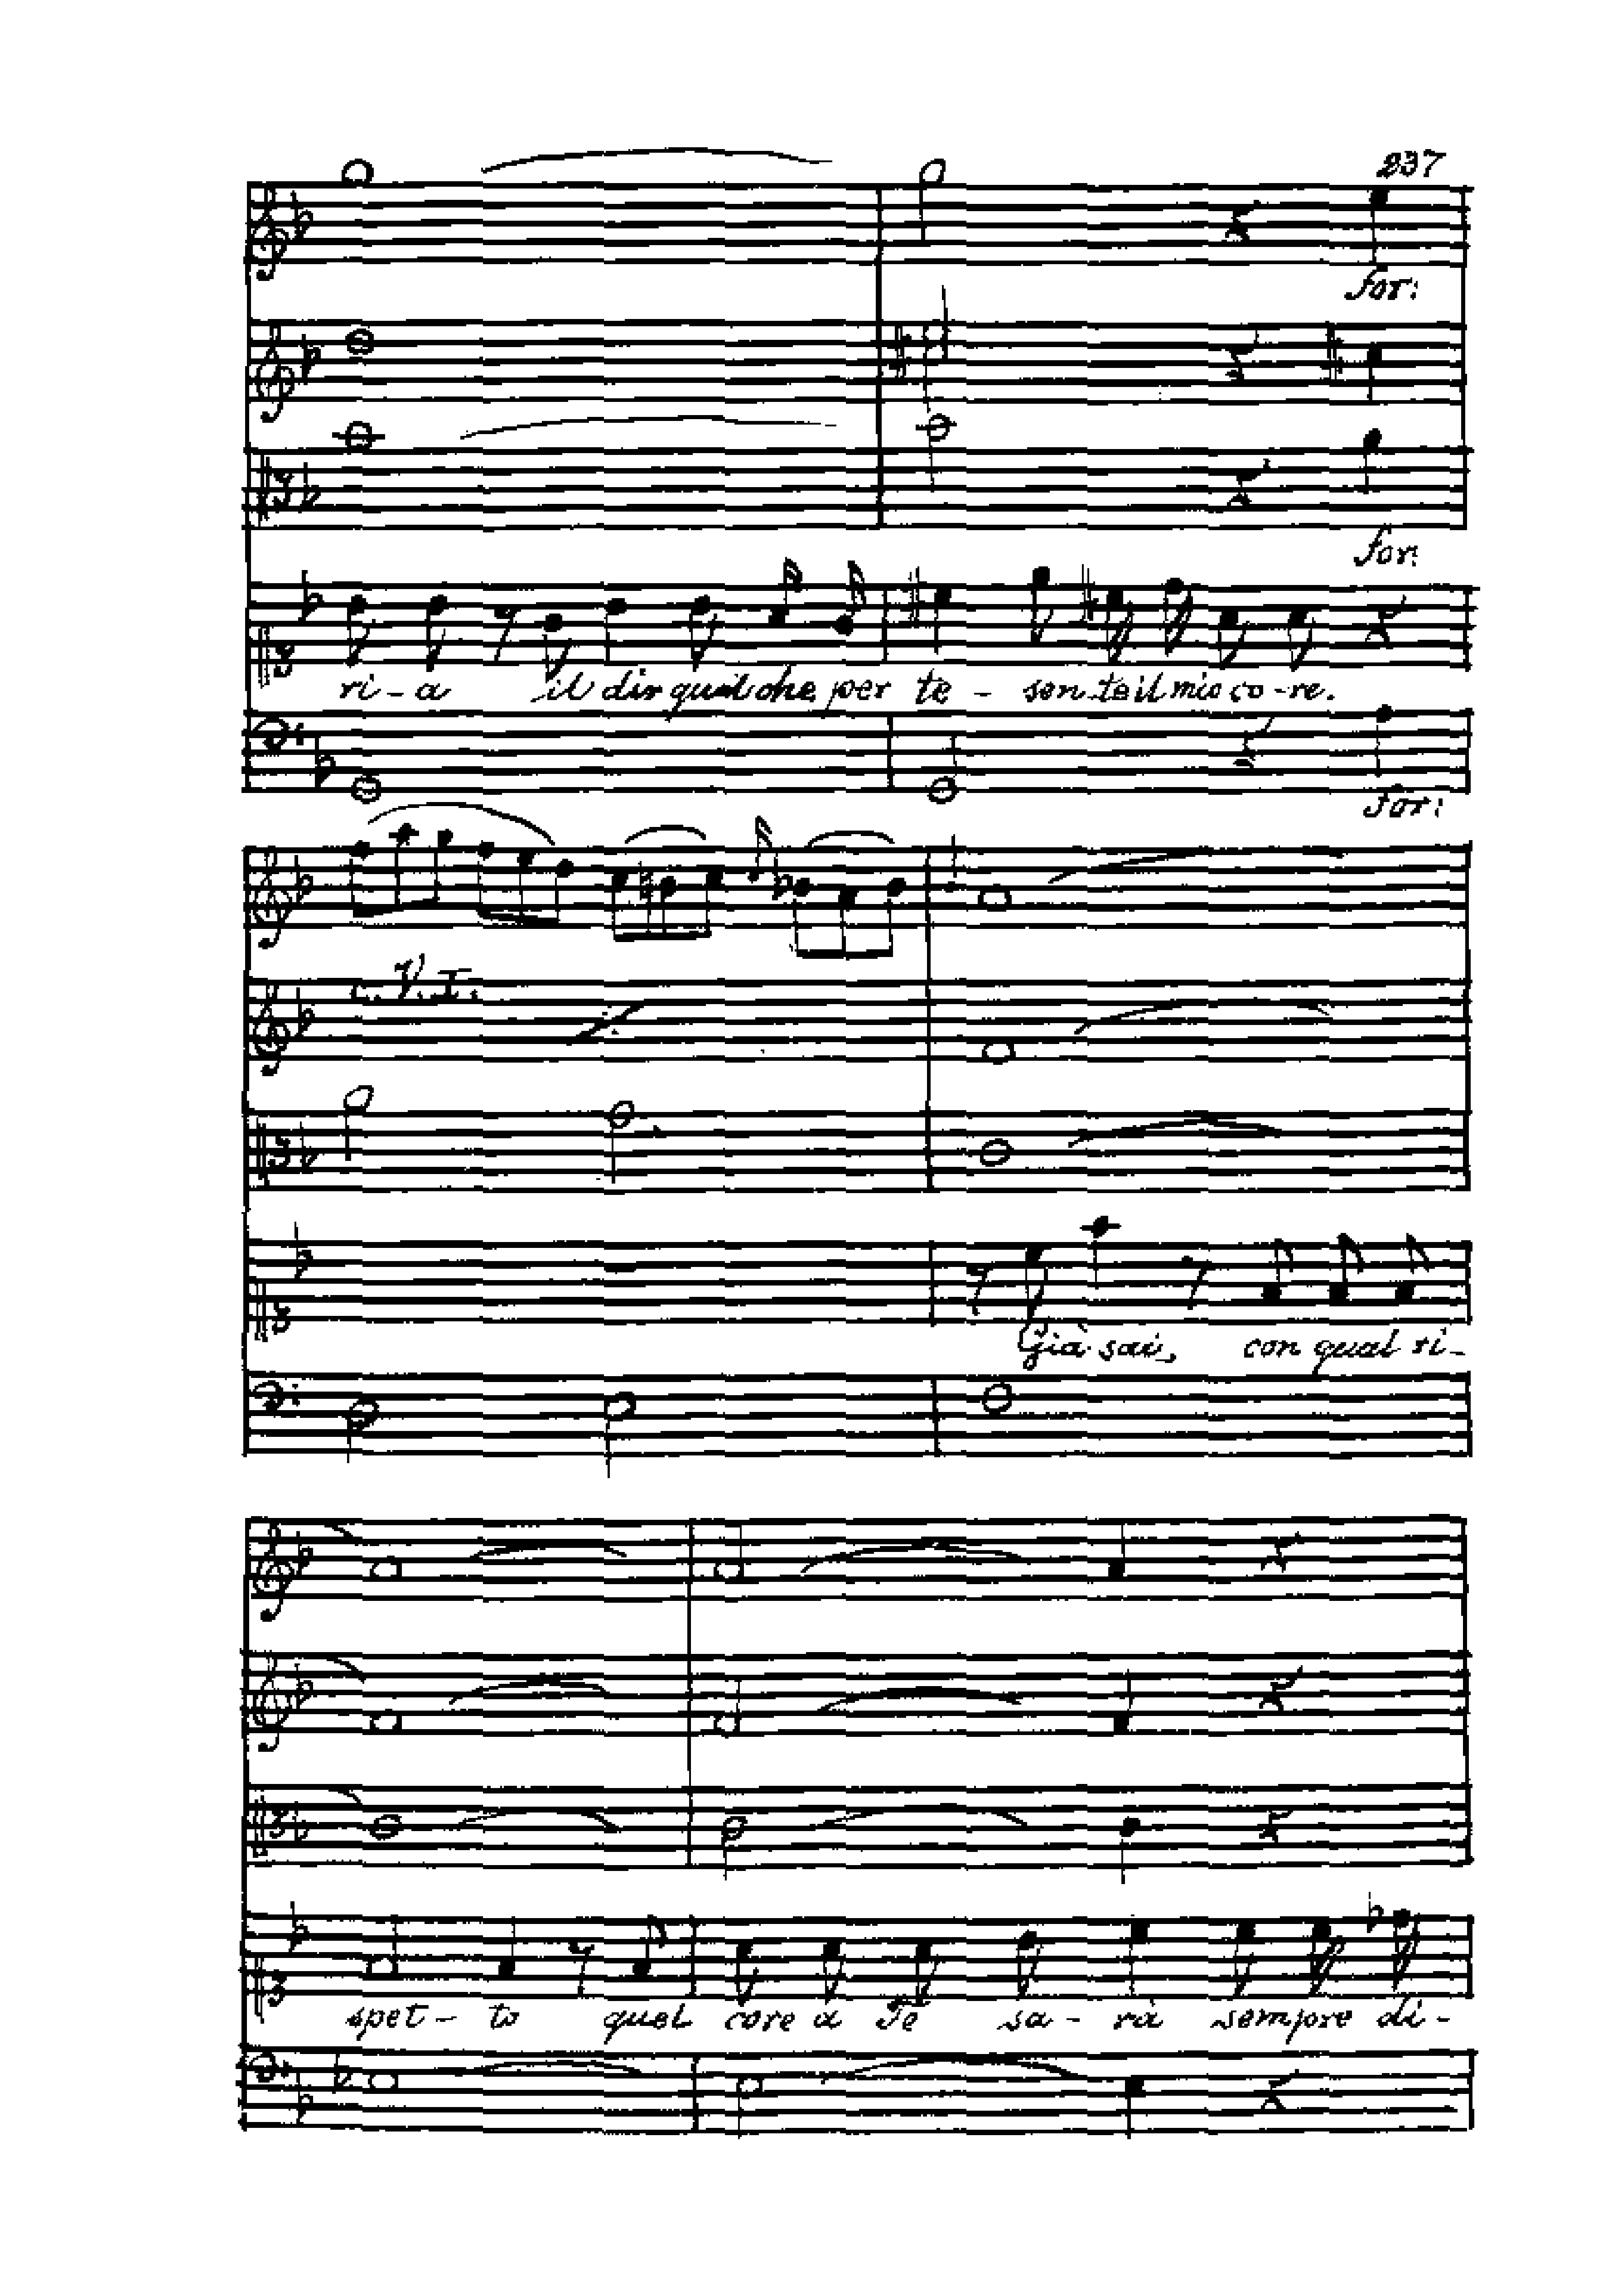 237
for:
for:
ri-a il dir quel che per te - sen-te il mio co-re.
for:
c. V. I.
Già sai, con qual ri-
spet-to quel core a Te sa-rà sempre di-